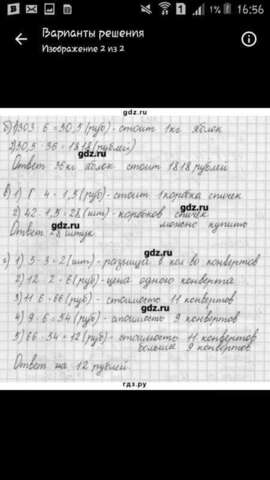 16:56
1%
Варианты решения
Изображение 2 из 2
gdz.ru
б) 1) 303 : 6 = 50,5 (руб) - стоит 1 кг яблок
2) 50,5 · 36 = 1818 (рублей)
gdz.ru
Ответ 36 кг яблок стоит 1818 рублей
gdz.ru
в) 1) 6 : 4 = 1,5 (руб) - стоит 1 коробка спичек
2) 42 : 1,5 = 28 (шт) - коробков спичек
можно купить
Ответ 28 штук
gdz.ru
gdz.ru
г) 1) 5 - 3 = 2 (шт) - разница в кол во конвертов
2) 12 : 2 = 6 (руб) - цена одного конверта
3) 11 · 6 = 66 (руб) - стоимость 11 конвертов
gdz.ru
4) 9 · 6 = 54 (руб) - стоимость 9 конвертов
5) 66 - 54 = 12 (руб) - стоимость 11 конвертов
больше 9 конвертов
gdz.ru
Ответ на 12 рублей
гдз.ру